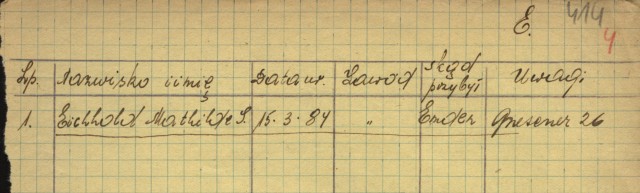 E. 414
4
Lp. Nazwisko i imię Data ur. Zawód Skąd przybył Uwagi
1. Eichhold Mathilde S. 15.3.84 " Emden Gnesener 26